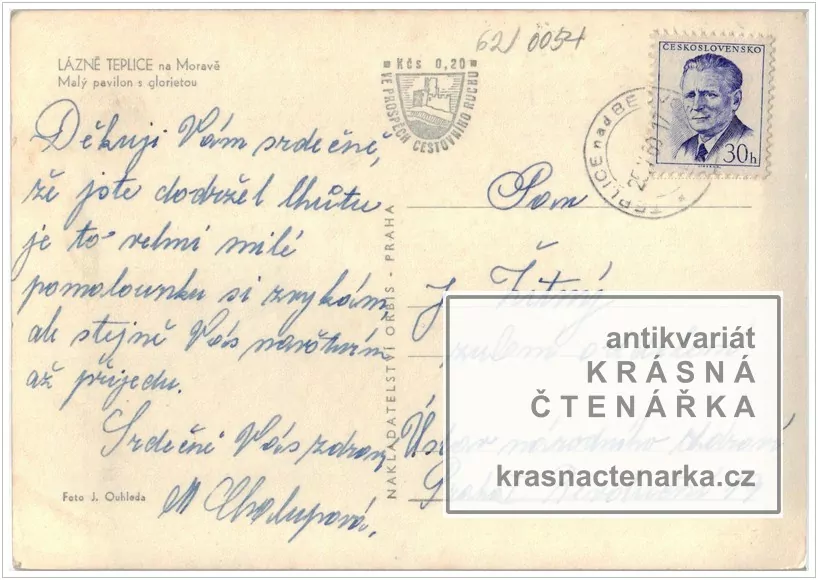 LÁZNĚ TEPLICE na Moravě
Malý pavilon s glorietou
62/0054
Kčs 0,20
VE PROSPĚCH CESTOVNÍHO RUCHU
ČESKOSLOVENSKO
30h
TEPLICE nad BE
Děkuji Vám srdečně,
že jste dodržel lhůtu
je to velmi milé
pomalounku si zvykám,
ale stejně Vás navštívím
až přijedu.
Srdečně Vás zdraví
M Chalupová,
Foto J. Ouhleda
NAKLADATELSTVÍ ORBIS - PRAHA
Pan
J. Žitný
Ústav národního zdraví
Praha
antikvariát
KRÁSNÁ
ČTENÁŘKA
krasnactenarka.cz